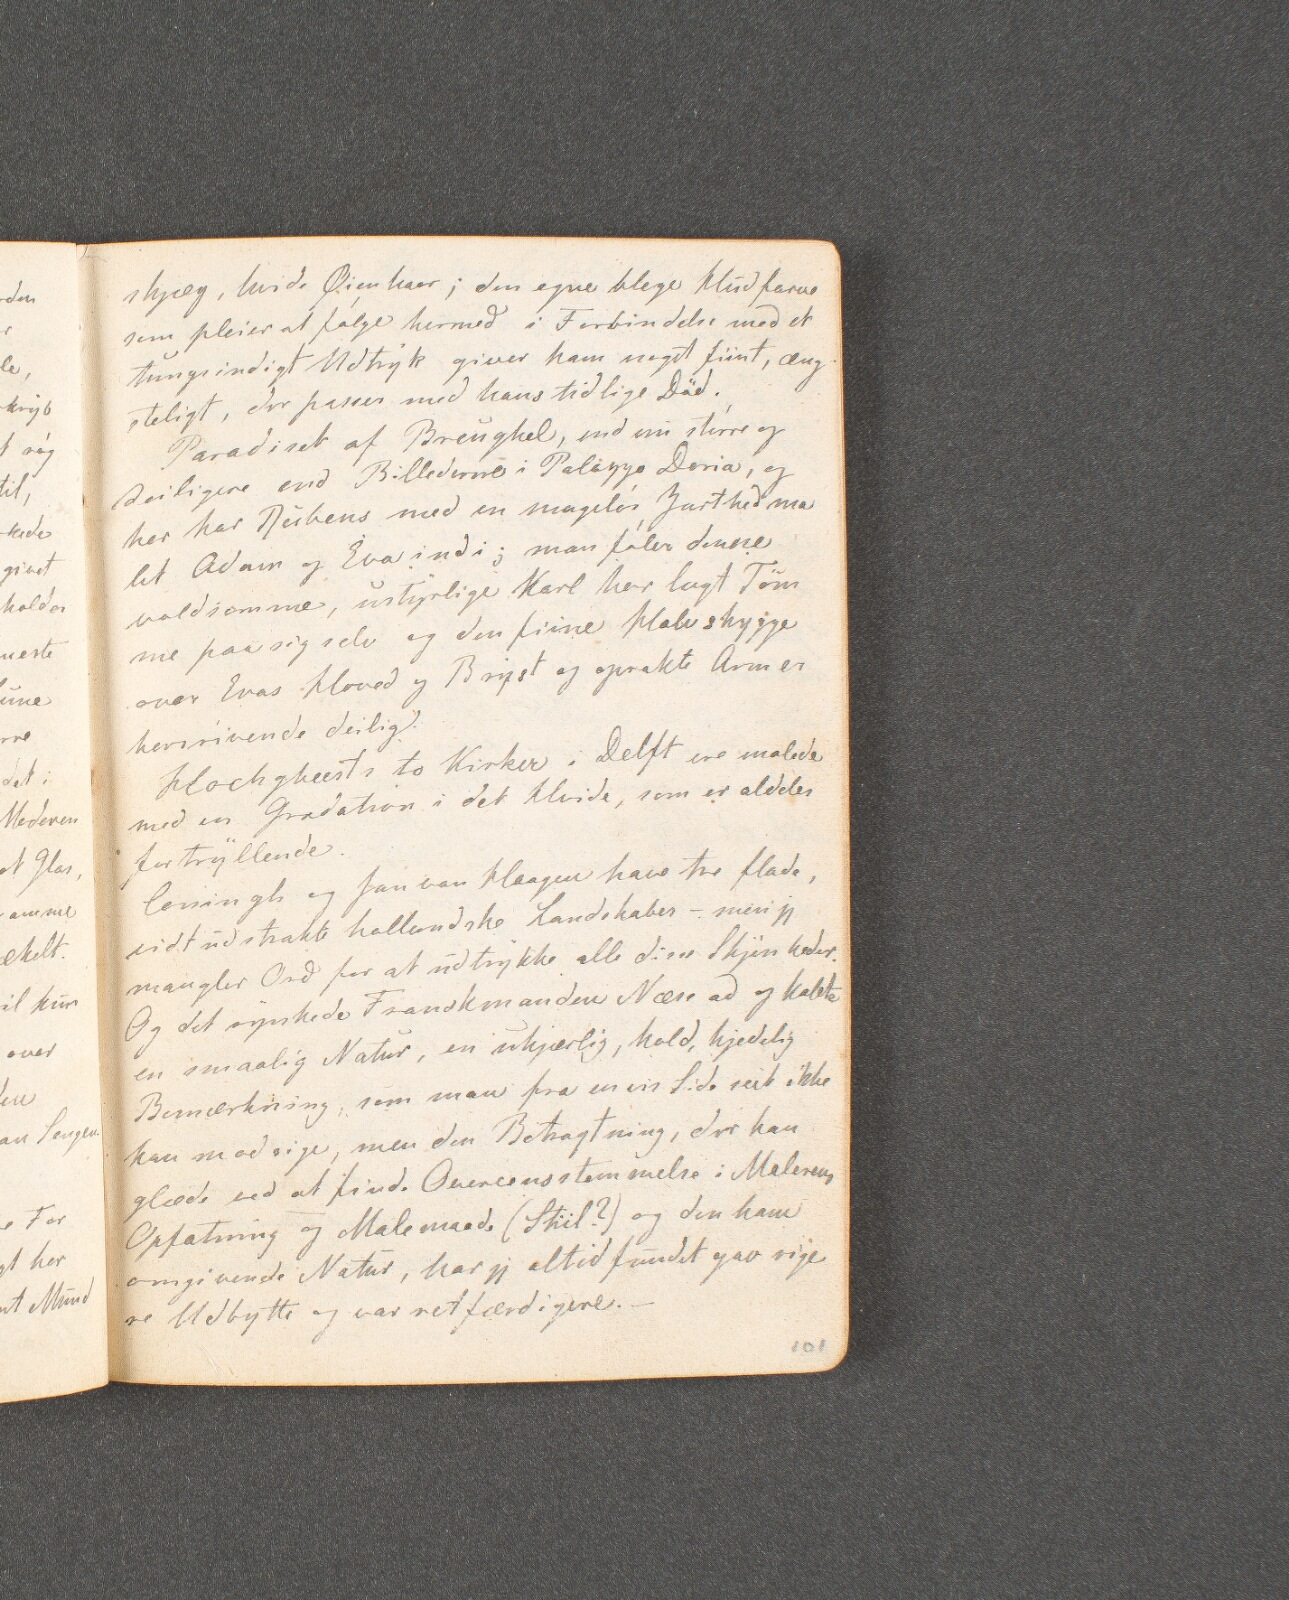 skjæg, hvide Øienhaar; den egne blege Hudfarve
som pleier at følge hermed i Forbindelse med et
tungsindigt Udtryk giver ham noget fiint, æng-
steligt, der passer med hans tidlige Død.
Paradiset af Breughel, end nu større og
deiligere end Billederne i Palazzo Doria, og
her har Rubens med en mageløs Zarthed ma
let Adam og Eva ind i; man føler denne
voldsomme, ustyrlige Karl har lagt Töm
me paa sig selv og den fiine Halvskygge
over Evas Hoved og Bryst og oprakte Arm er
henrivende deilig.
Hochgheests to Kirker i Delft ere malede
med en Gradation i det Hvide, som er aldeles
fortryllende.
Coningh og Jan van Haagen have tre flade,
vidt udstrakte hollandske Landskaber – men jeg
mangler Ord for at udtrykke alle disse Skjønheder.
Og det rynkede Franskmanden Næse ad og kaldte
en smaalig Natur, en ukjærlig, kold, kjedelig
Bemærkning, som man fra en vis Side seet ikke
kan modsige, men den Betragtning, der kan
glæde ved at finde Overeensstemmelse i Malerens
Opfatning og Malemaade (Stiil?) og den ham
omgivende Natur, har jeg altid fundet gav rige
re Udbytte og var retfærdigere. —
101
rden
r
le,
t sig
til,
givet
holder
meste
rre
det i
Mederen
et Glas,
amme
ækelt.
il kun
over
den
an Senge
e For
gt her
nt Mund